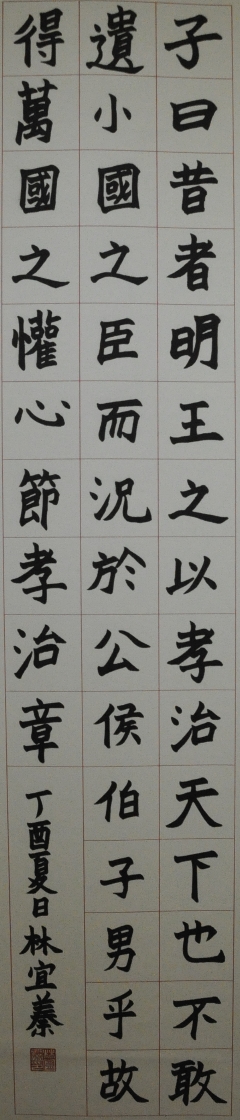 子曰昔者明王之以孝治天下也不敢
遺小國之臣而況於公侯伯子男乎故
得萬國之懽心節孝治章
丁酉夏日林宜蓁